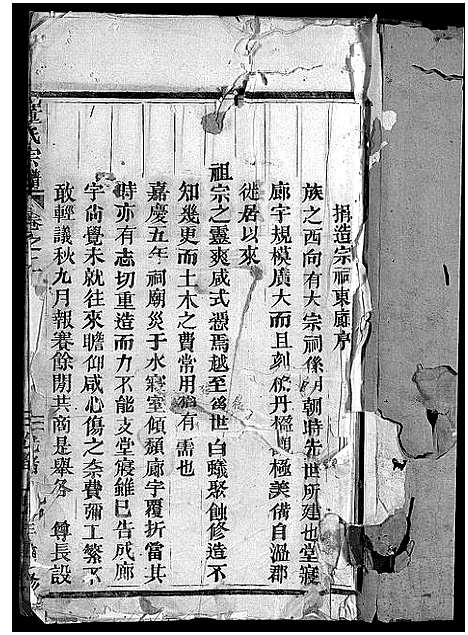 捐造宗祠東廊序
族之西向有大宗祠係明朝時先世所建也堂寢
廊宇規模廣大而且刻桷丹楹極美備自溫郡
徙居以來
祖宗之靈爽咸式憑焉越至後世白蟻聚蝕修造不
知幾更而土木之費常用猶有需也
嘉慶五年祠廟災于水寢室傾頹廊宇覆折當其
時亦有志切重造而力不能支堂寢雖已告成廊
宇尚覺未就往來瞻仰咸心傷之奈費彌工繁不
敢輕議秋九月報賽餘閒共商是舉各 尊長設
氏宗譜 卷之一